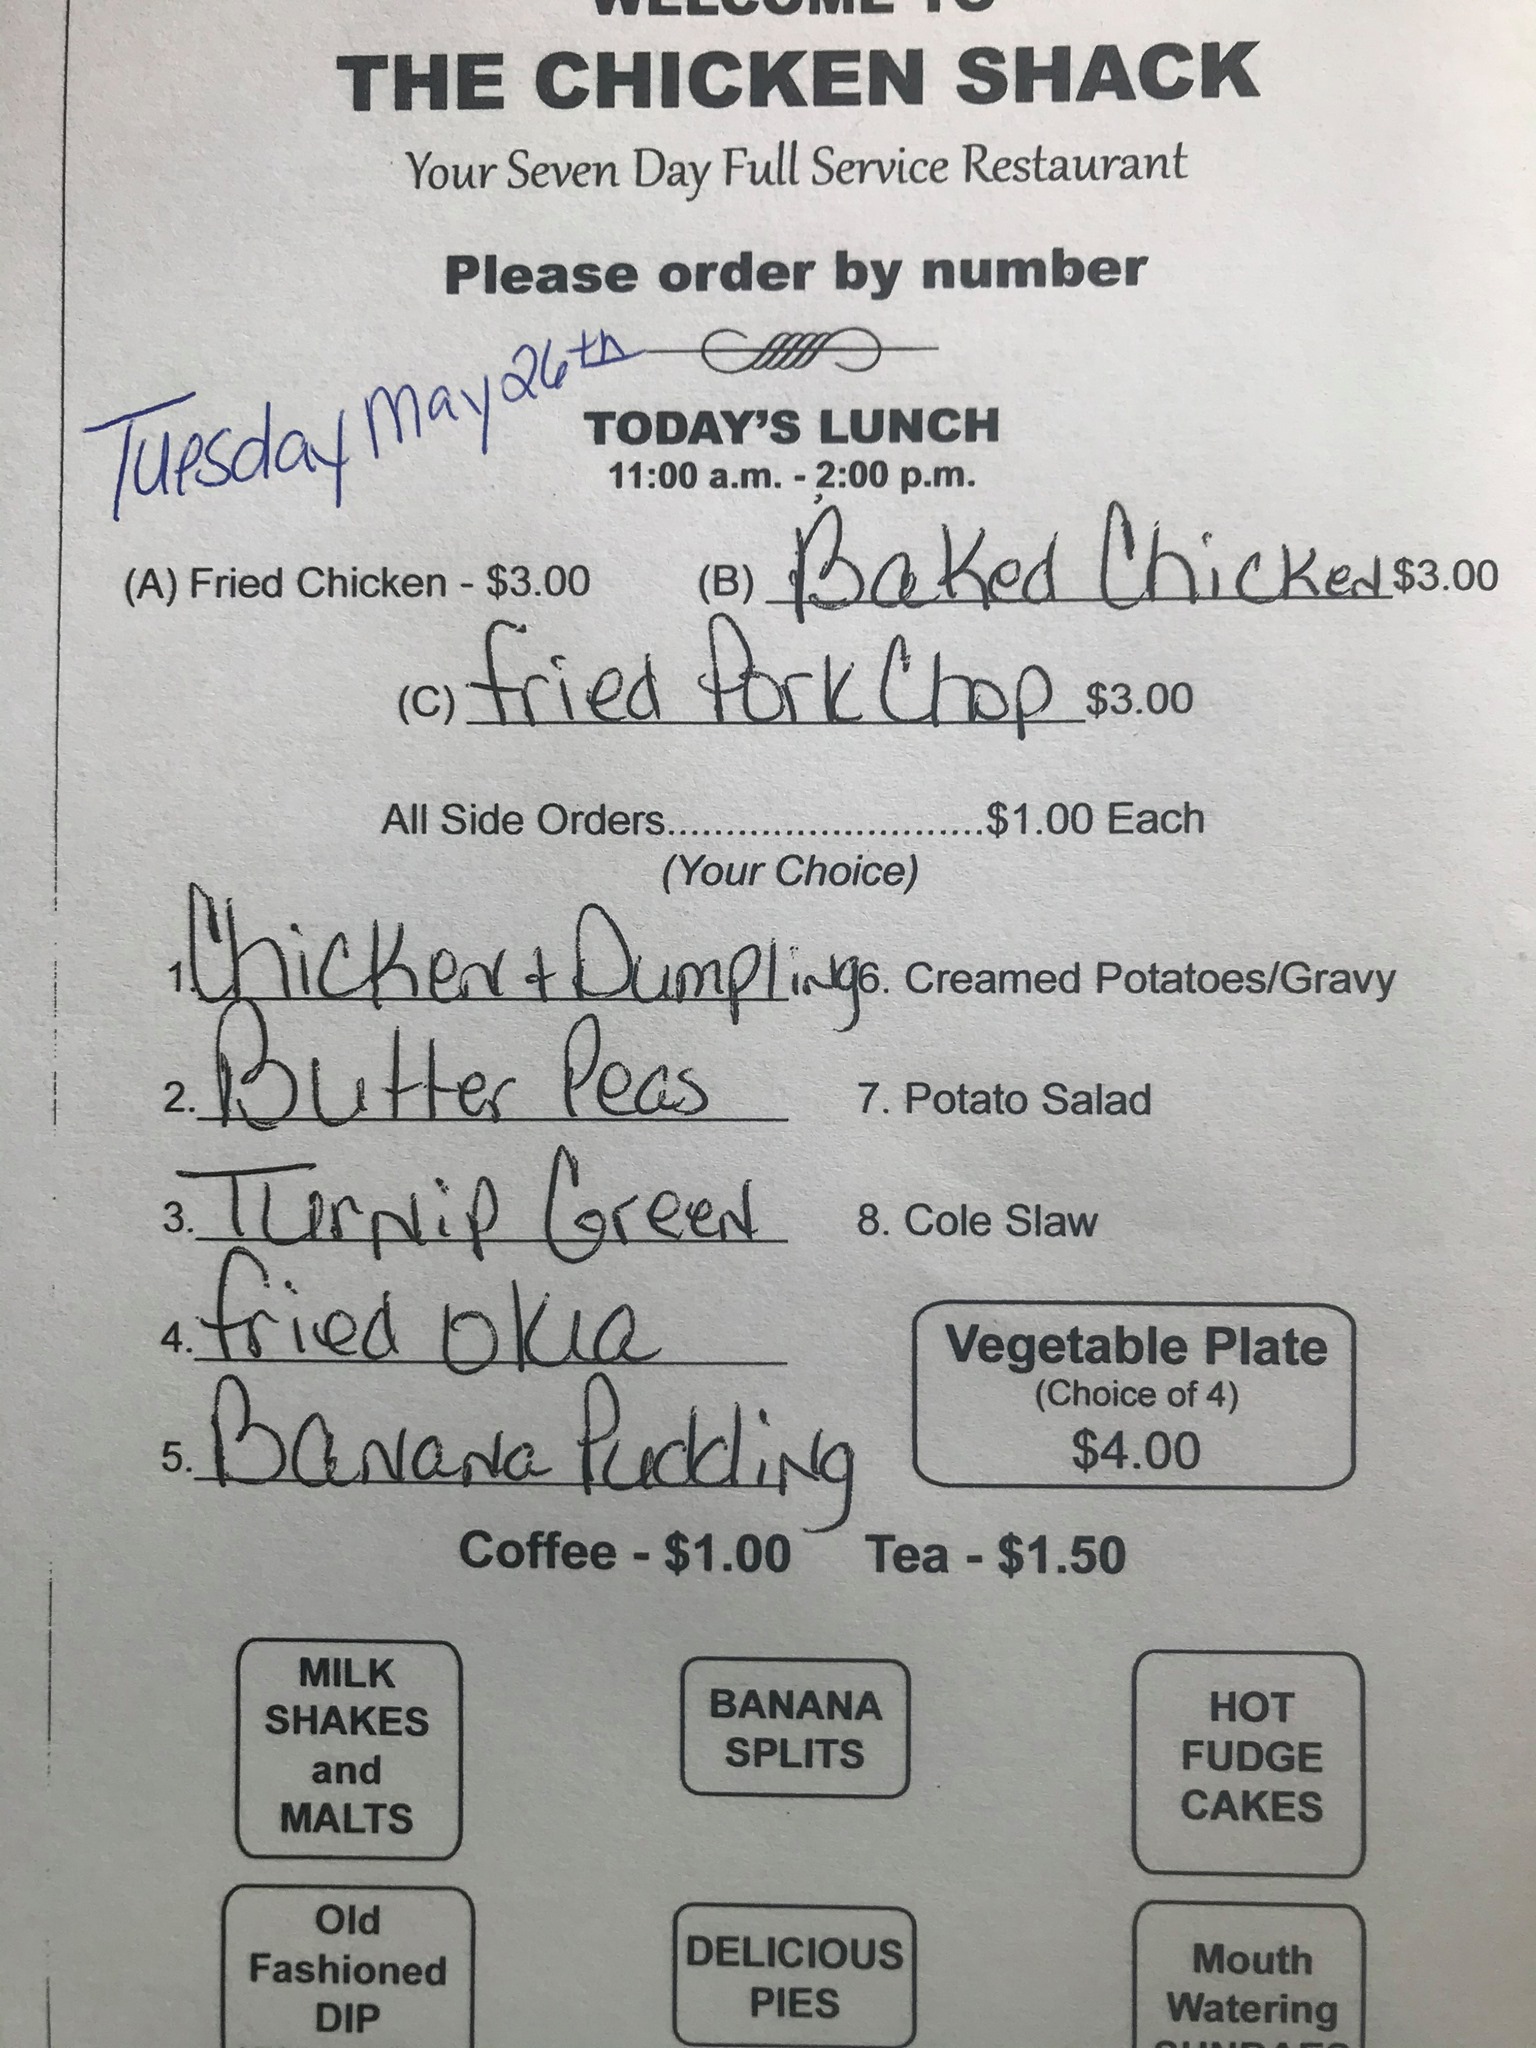 WELCOME TO
THE CHICKEN SHACK
Your Seven Day Full Service Restaurant
Please order by number
Tuesday May 26th
TODAY'S LUNCH
11:00 a.m. - 2:00 p.m.
(A) Fried Chicken - $3.00 (B) Baked Chicken $3.00
(C) Fried Pork Chop $3.00
All Side Orders...........................$1.00 Each
(Your Choice)
1. Chicken + Dumpling 6. Creamed Potatoes/Gravy
2. Butter Peas 7. Potato Salad
3. Turnip Green 8. Cole Slaw
4. Fried Okra
5. Banana Pudding
Vegetable Plate
(Choice of 4)
$4.00
Coffee - $1.00 Tea - $1.50
MILK
SHAKES
and
MALTS
BANANA
SPLITS
HOT
FUDGE
CAKES
Old
Fashioned
DIP
DELICIOUS
PIES
Mouth
Watering
SUNDAES